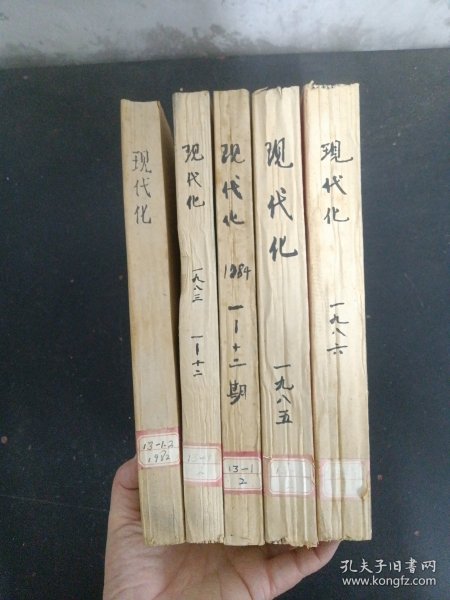 现代化
13-1.2
1982
现代化
一九八三
一—十二
13-1
现代化
1984
一—十二期
13-1
2
现代化
一九八五
现代化
一九八六
孔夫子旧书网
www.kongfz.com